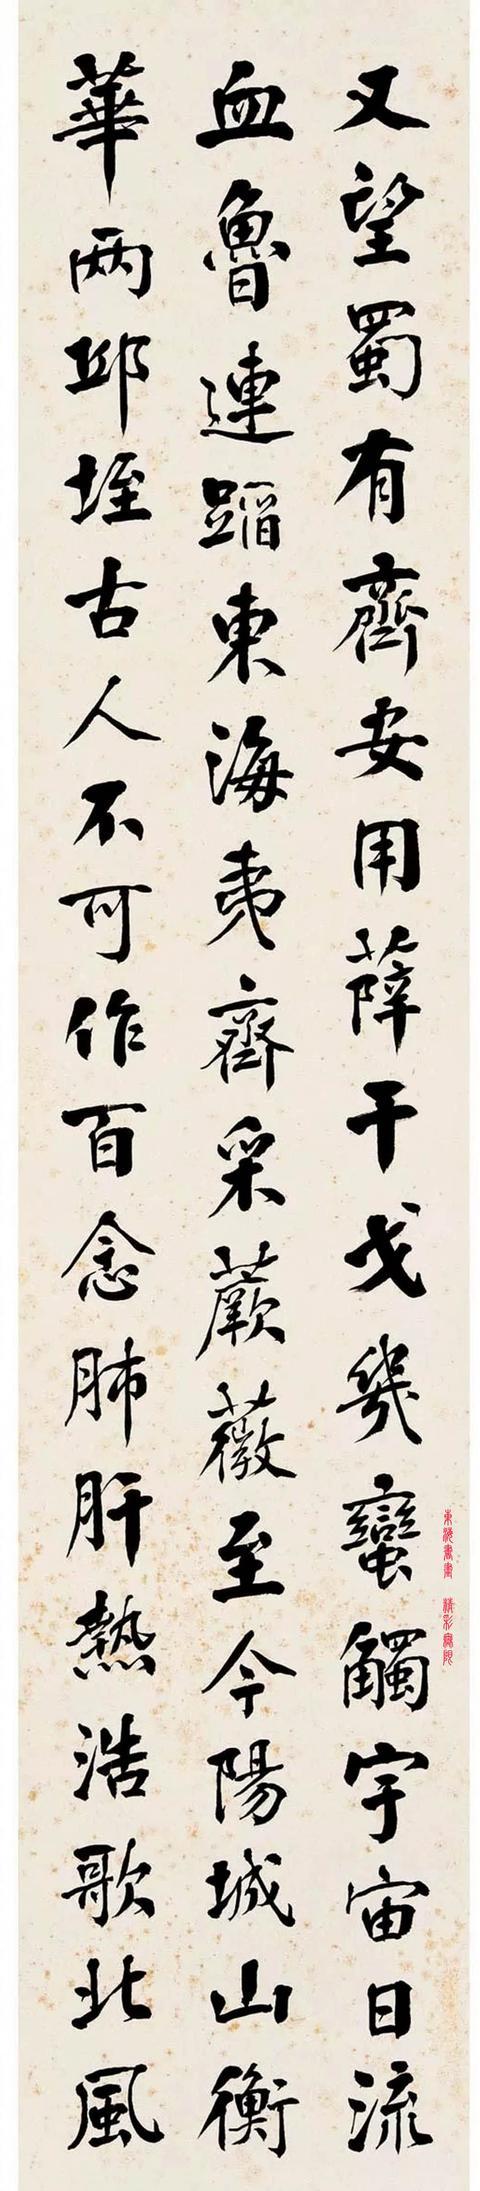 又望蜀有齊安用薛干戈幾蠻觸宇宙日流
血魯連蹈東海夷齊采蕨薇至今陽城山衡
華兩邱垤古人不可作百念肺肝熱浩歌北風
東海書畫 精彩寓院